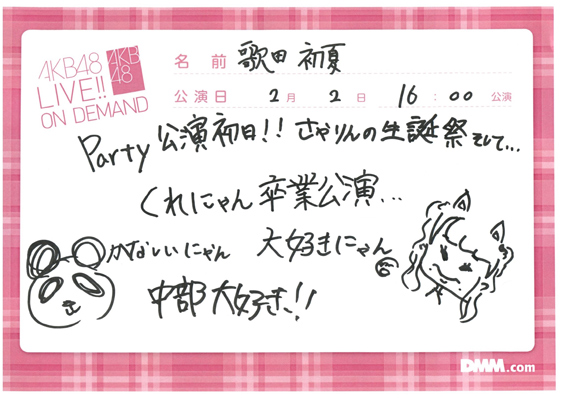 AKB48
LIVE!!
ON DEMAND
AKB
48
名前 歌田 初夏
公演日 2月 2日 16:00 公演
Party 公演初日!! さやりんの生誕祭 そして...
くれにゃん 卒業公演...
かなしいにゃん 大好きにゃん
中部大好き!!
DMM.com